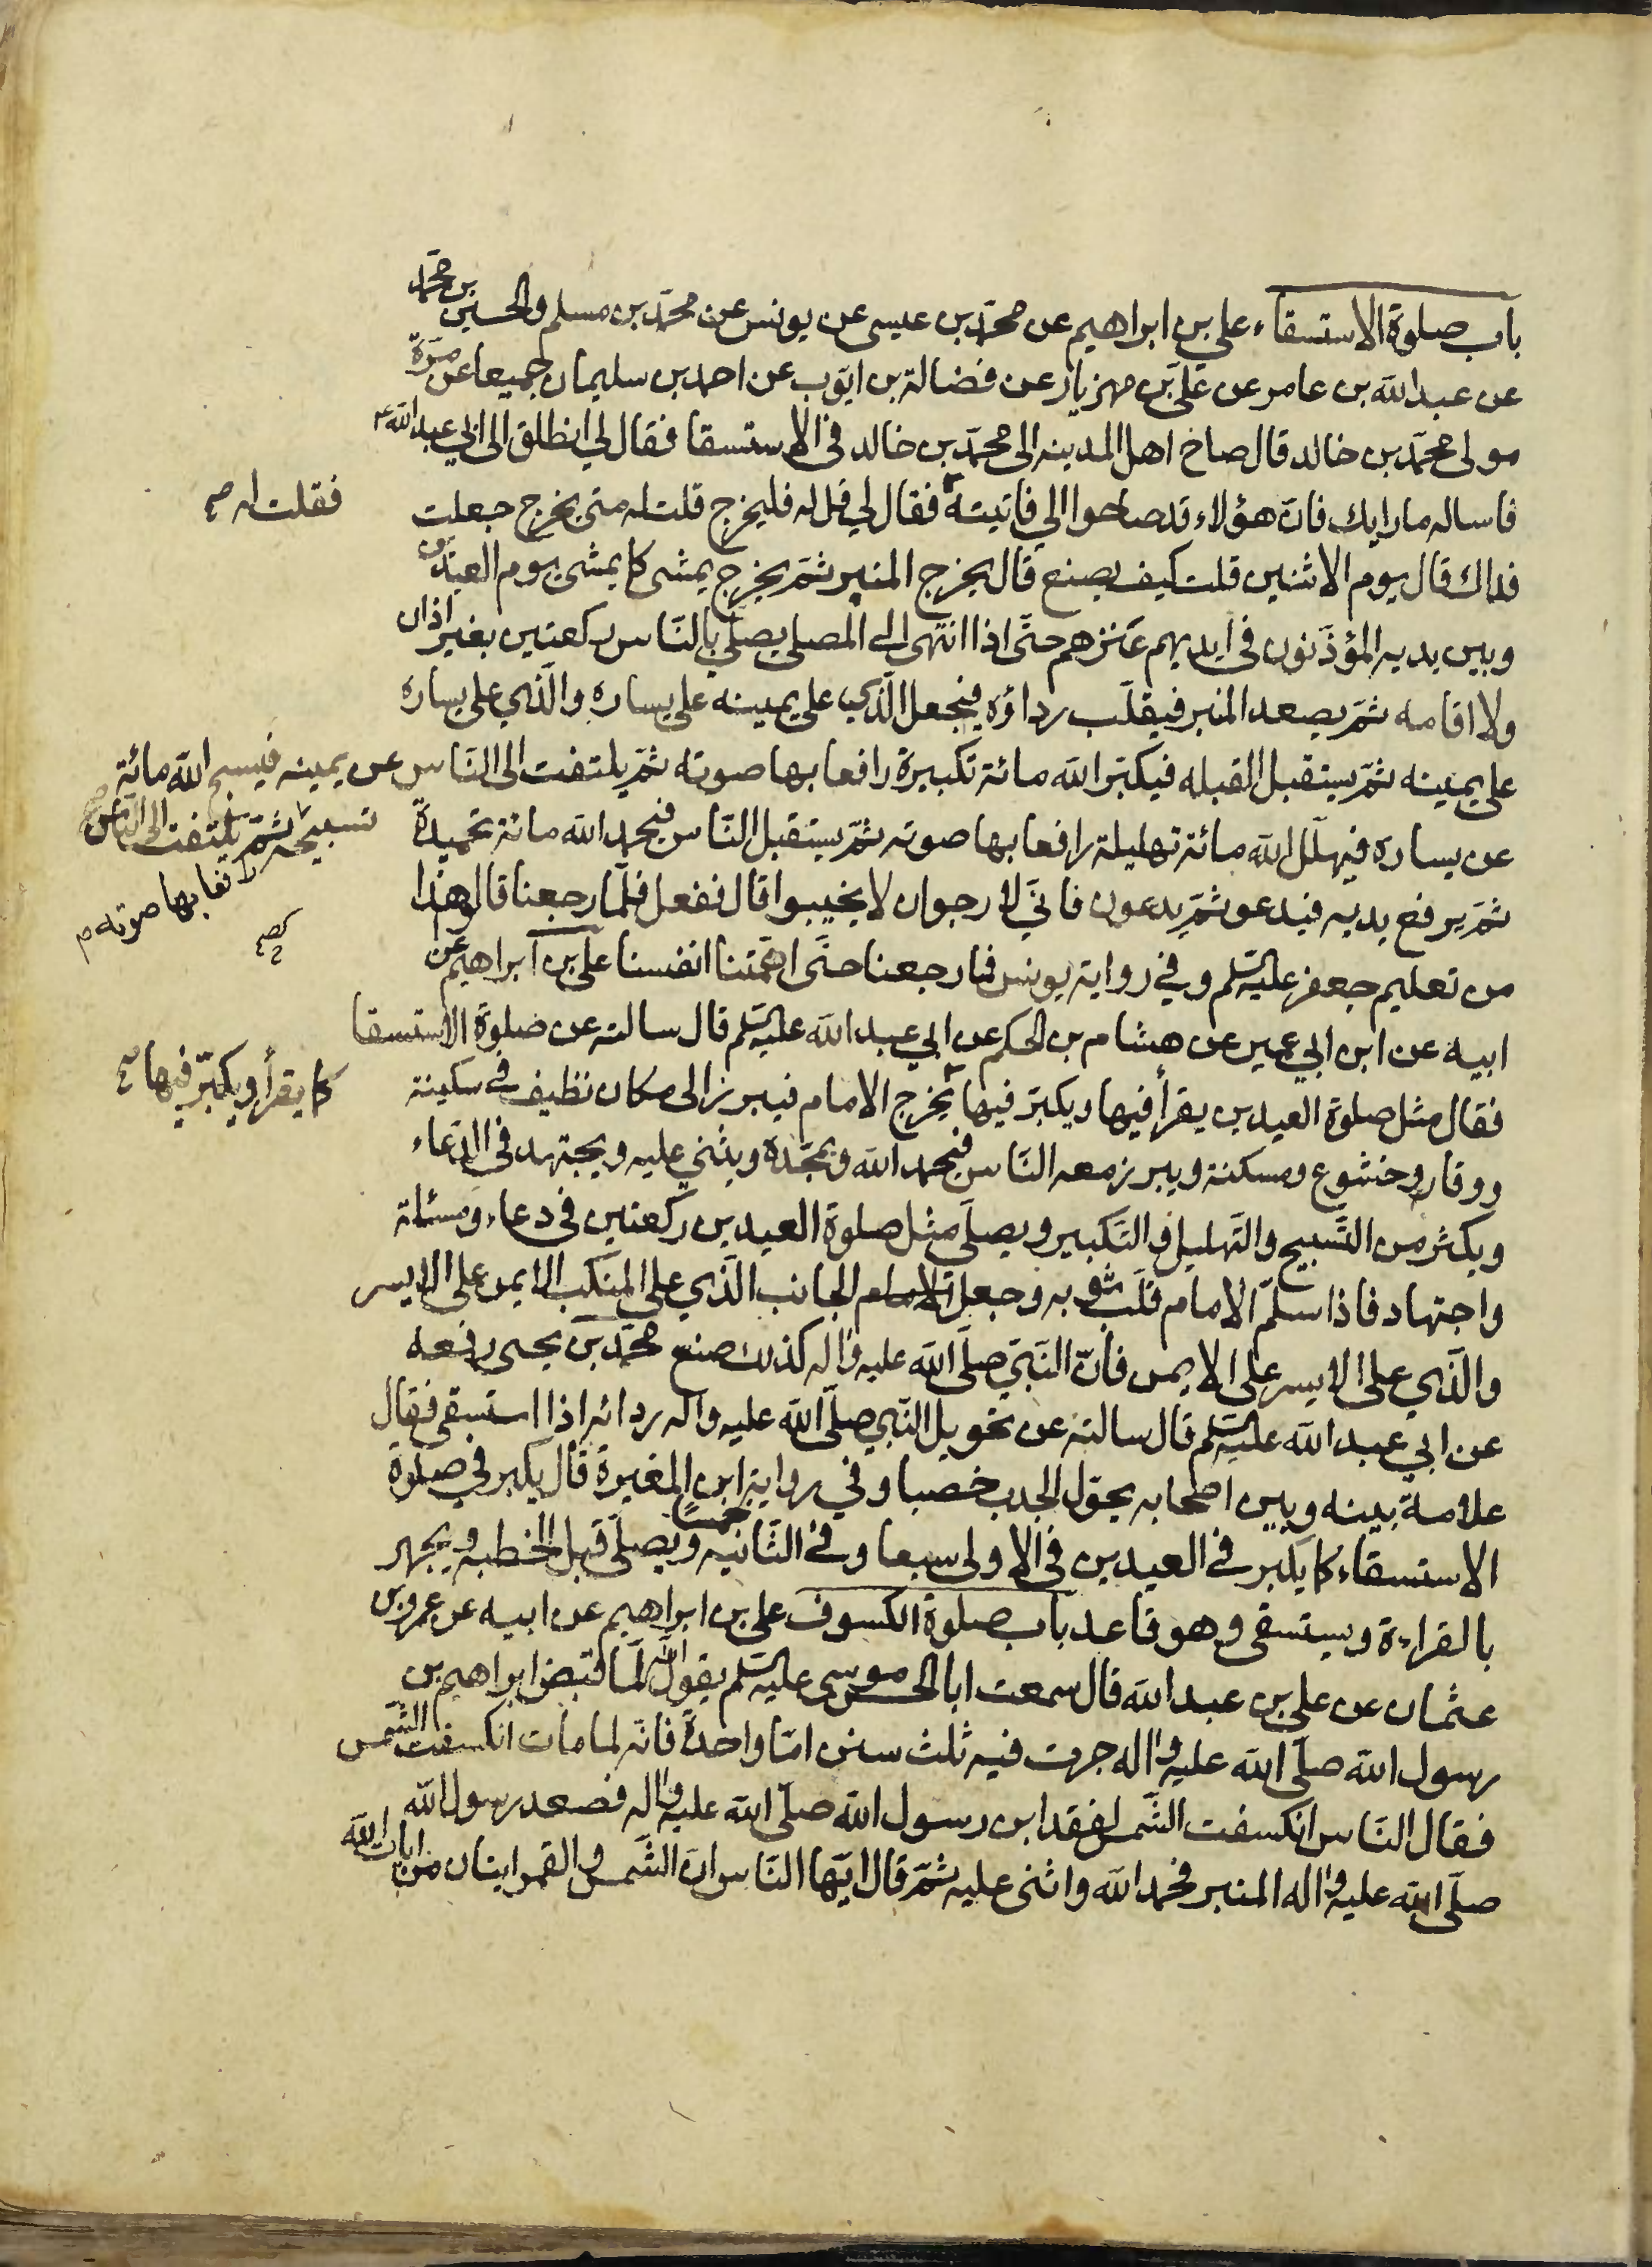 باب صلوة الاستسقاء علي بن ابراهيم عن محمّد بن عيسى عن يونس عن محمّد بن مسلم والحسين بن محمّد
عن عبد الله بن عامر عن علي بن مهزيار عن فضالة بن ايّوب عن احمد بن سليمان جميعا عن مرّة
مولى محمّد بن خالد قال صاح اهل المدينه الى محمّد بن خالد في الاستسقا فقال لي انطلق الى ابي عبد الله ع
فاساله ما رايك فانّ هؤلاء قد صاحوا الي فاتيتهُ فقال لي قل له فليخرج قلت له متى يخرج جعلت
فقلت له صح
فداك قال يوم الاثنين قلت كيف يصنع قال يخرج المنبر ثمّ يخرج يمشى كما يمشى يوم العيدين
وبين يديه المؤذّنون في ايديهم عنزهم حتّى اذا انتهى الى المصلى يصلّي بالنّاس ركعتين بغير اذان
ولا اقامه ثمّ يصعد المنبر فيقلّب رداؤه فيجعل الّذي على يمينه على يساره والّذي على يساره
على يمينه ثمّ يستقبل القبله فيكبّر الله مائة تكبيرة رافعا بها صوته ثمّ يلتفت الى النّاس عن يمينه فيسبح الله مائة
تسبيحة رافعا بها صوته ثمّ يلتفت الى النّاس صح
عن يساره فيهلّل الله مائة تهليلة رافعا بها صوته ثمّ يستقبل النّاس فيحمد الله مائة تحميدة
ثمّ يرفع يديه فيدعو ثمّ يدعون فانّي لارجو ان لا يخيبوا قال ففعل فلمّا رجعنا قالوا هذا
من تعليم جعفر عليه السّلم وفي رواية يونس فما رجعنا حتّى اهمّتنا انفسنا علي بن ابراهيم عن
ابيه عن ابن ابي عمير عن هشام بن الحكم عن ابي عبد الله عليه السّلم قال سالته عن صلوة الاستسقا
فقال مثل صلوة العيدين يقرأ فيها ويكبّر فيها يخرج الامام فيبرز الى مكان نظيف في سكينة
كما يقرأ ويكبّر فيها صح
ووقار وخشوع ومسكنة ويبرز معه النّاس فيحمد الله ويمجّده ويثني عليه ويجتهد في الدّعاء
ويكثر من التّسبيح والتّهليل والتّكبير ويصلّى مثل صلوة العيدين ركعتين في دعاء ومسئلة
واجتهاد فاذا سلّم الامام قلّب ثوبه وجعل الجانب الّذي على المنكب الايمن على الايسر
والّذي على الايسر على الايمن فانّ النّبيّ صلّى الله عليه واله كذلك صنع محمّد بن يحيى رفعه
عن ابي عبد الله عليه السّلم قال سالته عن تحويل النّبي صلّى الله عليه واله ردائه اذا استسقى فقال
علامة بينه وبين اصحابه يحوّل الجدب خصبا وفي رواية ابن المغيرة قال يكبر في صلوة
الاستسقاء كما يكبر في العيدين في الاولى سبعا وفي الثّانيه خمساً ويصلّى قبل الخطبه ويجهر
بالقراءة ويستسقى وهو قاعد باب صلوة الكسوف علي بن ابراهيم عن ابيه عن عمرو بن
عثمان عن علي بن عبد الله قال سمعت ابا الحسن موسى عليه السّلم يقول انّه لمّا قبض ابراهيم بن
رسول الله صلّى الله عليه واله جرت فيه ثلث سنن امّا واحدةً فانّه لما مات انكسفت الشّمس
فقال النّاس انكسفت الشّمس لفقد ابن رسول الله صلّى الله عليه واله فصعد رسول الله
صلّى الله عليه واله المنبر فحمد الله واثنى عليه ثمّ قال ايّها النّاس انّ الشّمس والقمر ايتان من ايات الله